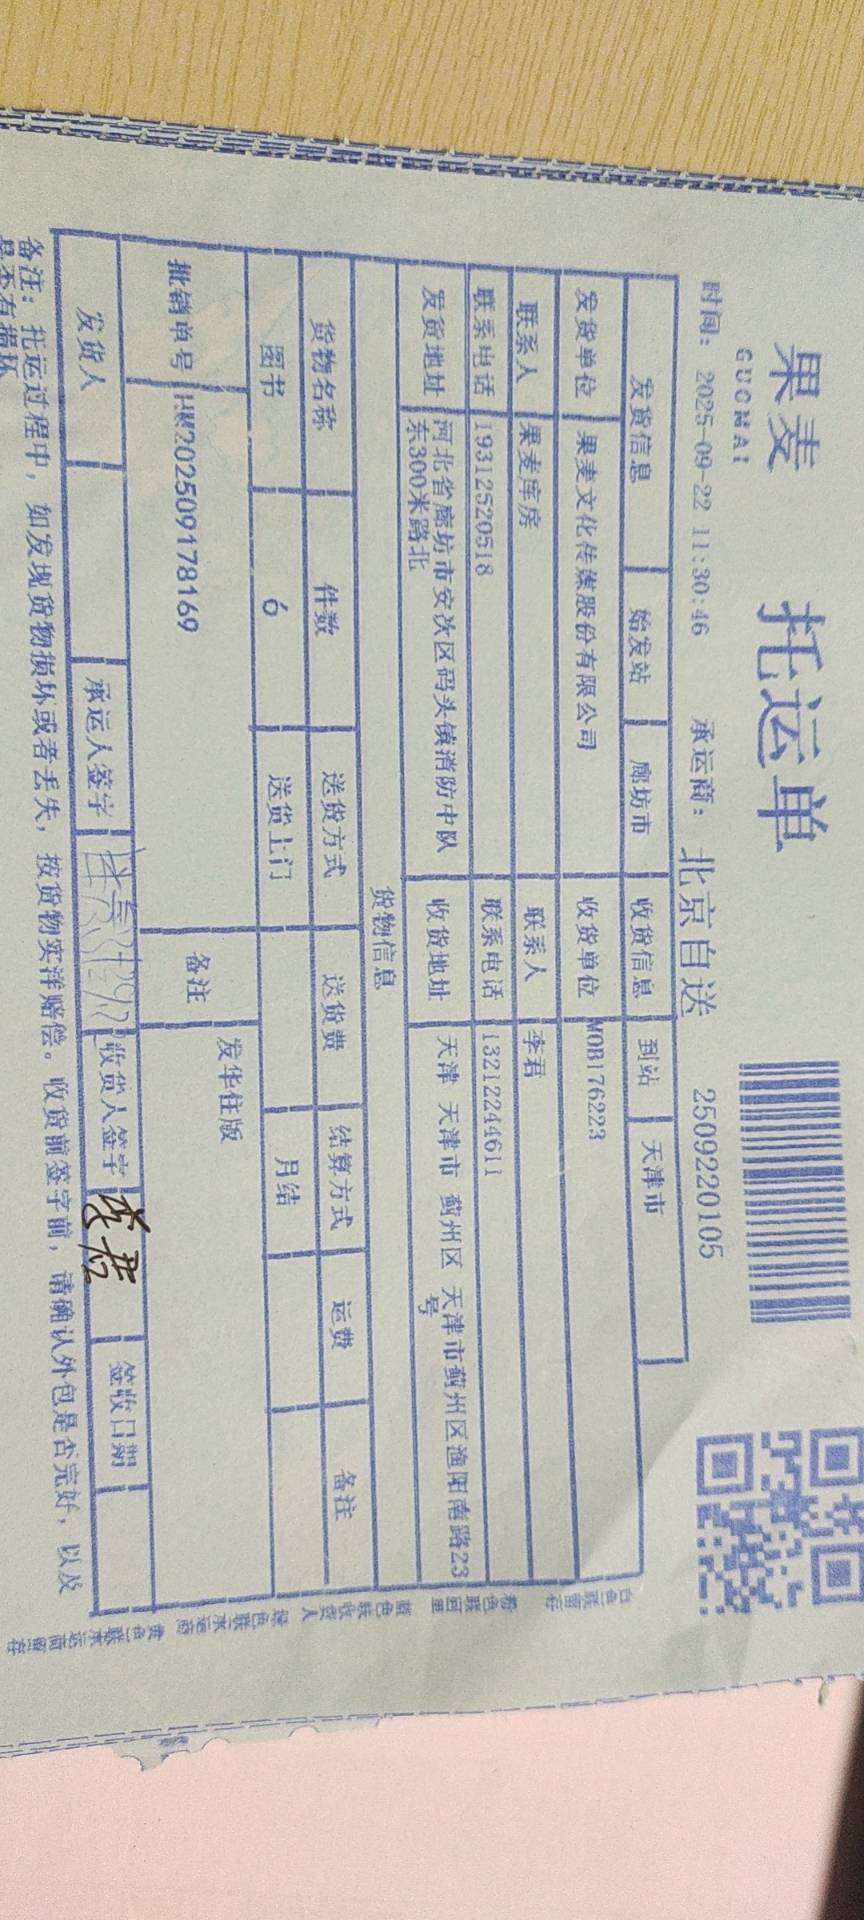 果麦
GUOMAI
托运单
时间: 2025-09-22 11:30:46 承运商: 北京自送 2509220105
发货信息 始发站 廊坊市 收货信息 到站 天津市
发货单位 果麦文化传媒股份有限公司 收货单位 MOB176223
联系人 果麦库房 联系人 李君
联系电话 19312520518 联系电话 13212244611
发货地址 河北省廊坊市安次区码头镇消防中队东300米路北 收货地址 天津 天津市 蓟州区 天津市蓟州区渔阳南路23号
货物信息
货物名称 件数 送货方式 送货费 结算方式 运费 备注
图书 6 送货上门 月结
批销单号 HM202509178169 备注 发华住版
发货人 承运人签字 收货人签字 李君 签收日期
备注: 托运过程中, 如发现货物损坏或者丢失, 按货物实洋赔偿。收货前签字前, 请确认外包是否完好, 以及
是否有损坏